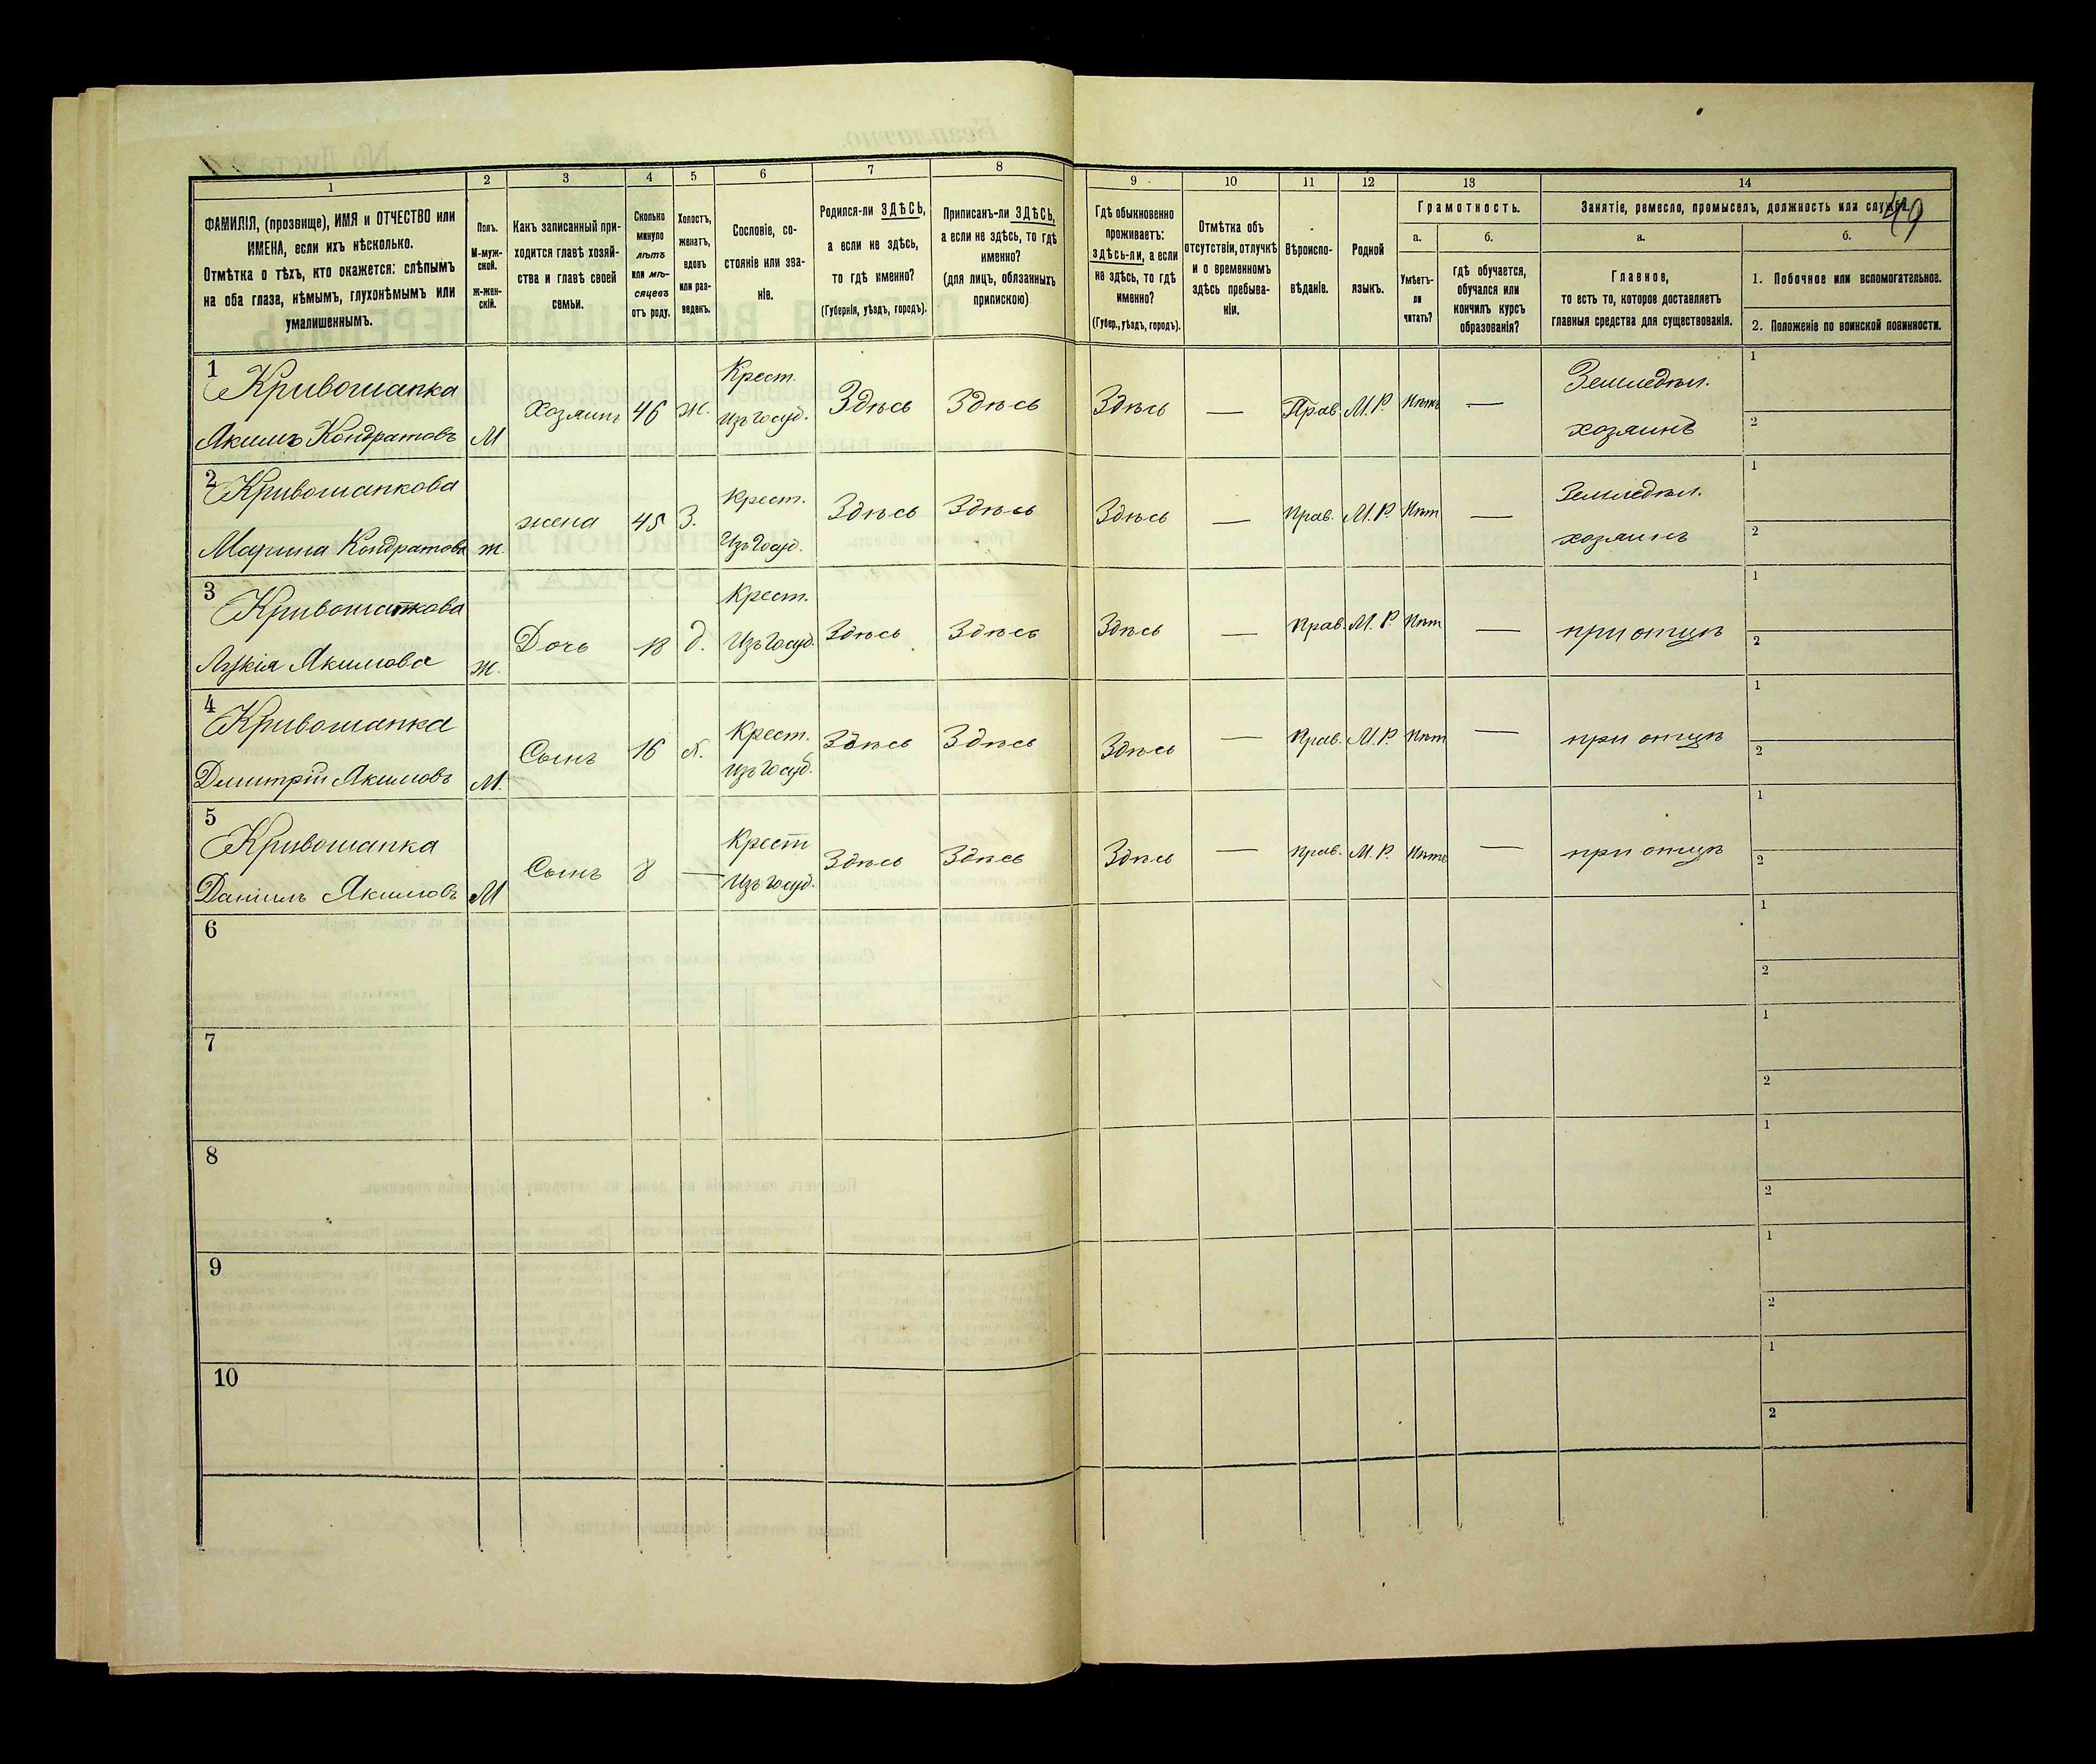 49
1 2 3 4 5 6 7 8 9 10 11 12 13 14
ФАМИЛІЯ, (прозвище), ИМЯ и ОТЧЕСТВО или
ИМЕНА, если ихъ нѣсколько.
Отмѣтка о тѣхъ, кто окажется: слѣпымъ
на оба глаза, нѣмымъ, глухонѣмымъ или
умалишеннымъ.
Полъ.
М-муж-
ской.
ж-жен-
скій.
Какъ записанный при-
ходится главѣ хозяй-
ства и главѣ своей
семьи.
Сколько
минуло
лѣтъ
или мѣ-
сяцевъ
отъ роду.
Холостъ,
женатъ,
вдовъ
или раз-
веденъ.
Сословіе, со-
стояніе или зва-
ніе.
Родился-ли ЗДѢСЬ,
а если не здѣсь,
то гдѣ именно?
(Губернія, уѣздъ, городъ).
Приписанъ-ли ЗДѢСЬ,
а если не здѣсь, то гдѣ
именно?
(для лицъ, обязанныхъ
припискою)
Гдѣ обыкновенно
проживаетъ:
ЗДѢСЬ-ли, а если
не здѣсь, то гдѣ
именно?
(Губер., уѣздъ, городъ).
Отмѣтка объ
отсутствіи, отлучкѣ
и о временномъ
здѣсь пребыва-
ніи.
Вѣроиспо-
вѣданіе.
Родной
языкъ.
Грамотность.
а.
Умѣетъ-
ли
читать?
б.
гдѣ обучается,
обучался или
кончилъ курсъ
образованія?
Занятіе, ремесло, промыселъ, должность или служба.
а.
Главное,
то есть то, которое доставляетъ
главныя средства для существованія.
б.
1. Побочное или вспомогательное.
2. Положеніе по воинской повинности.
1 Кривошапка Крест. Земледѣл. 1
Якимъ Кондратовъ М Хозяинъ 46 ж. Изъ госуд. Здѣсь Здѣсь Здѣсь — Прав. М.Р. Нѣтъ — хозяинъ 2
2 Кривошапкова Крест. Земледѣл. 1
Марина Кондратова ж. жена 45 З. Изъ госуд. Здѣсь Здѣсь Здѣсь — Прав. М.Р. Нѣт — хозяинъ 2
3 Кривошапкова Крест. 1
Якимова ж. Дочь 18 д. Изъ госуд. Здѣсь Здѣсь Здѣсь — Прав. М.Р. Нѣт — при отцѣ 2
4 Кривошапка Крест. 1
Димитрій Якимовъ М. Сынъ 16 х. Изъ госуд. Здѣсь Здѣсь Здѣсь — Прав. М.Р. Нѣт — при отцѣ 2
5 Кривошапка Крест 1
Даніилъ Якимовъ М Сынъ 8 — Изъ госуд. Здѣсь Здѣсь Здѣсь — Прав. М.Р. Нѣтъ — при отцѣ 2
6 1
2
7 1
2
8 1
2
9 1
2
10 1
2